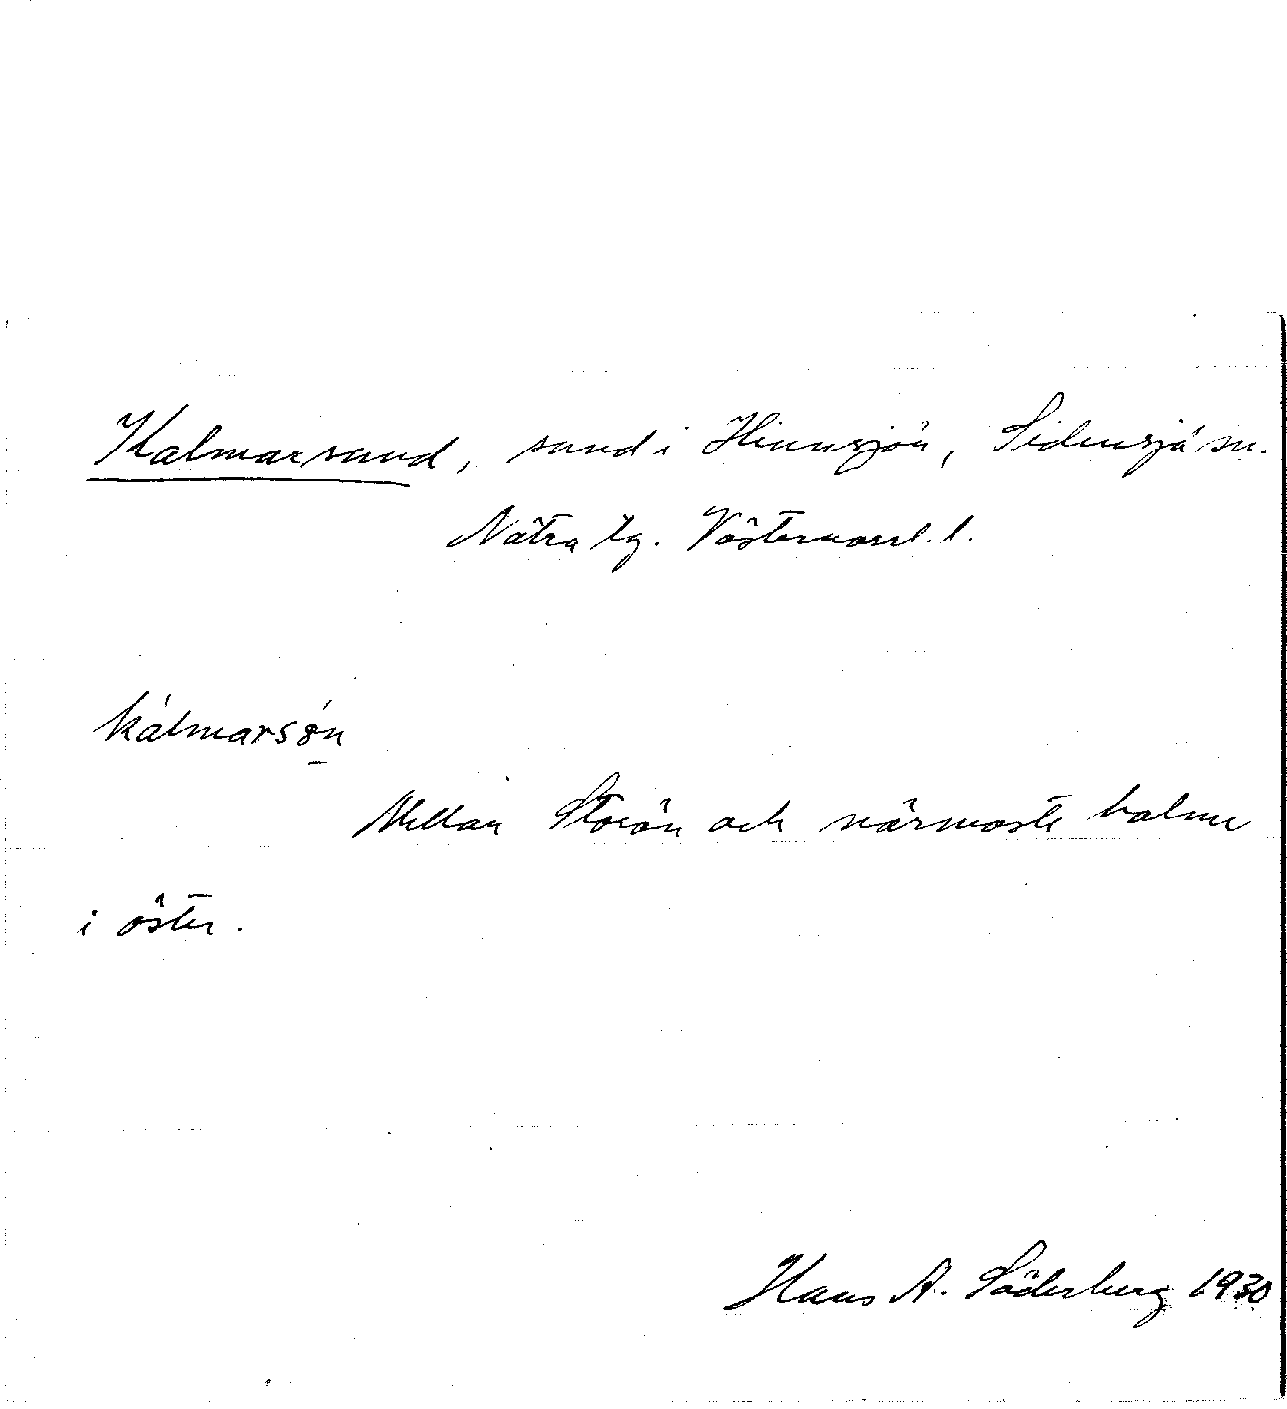 Kalmarsund, sund i Hinnsjön, Sidensjö sn.
Nätra tg. Västernorrl. l.
kálmarsøn
Mellan Storön och närmaste holme
i öster.
Hans A. Söderberg 1930